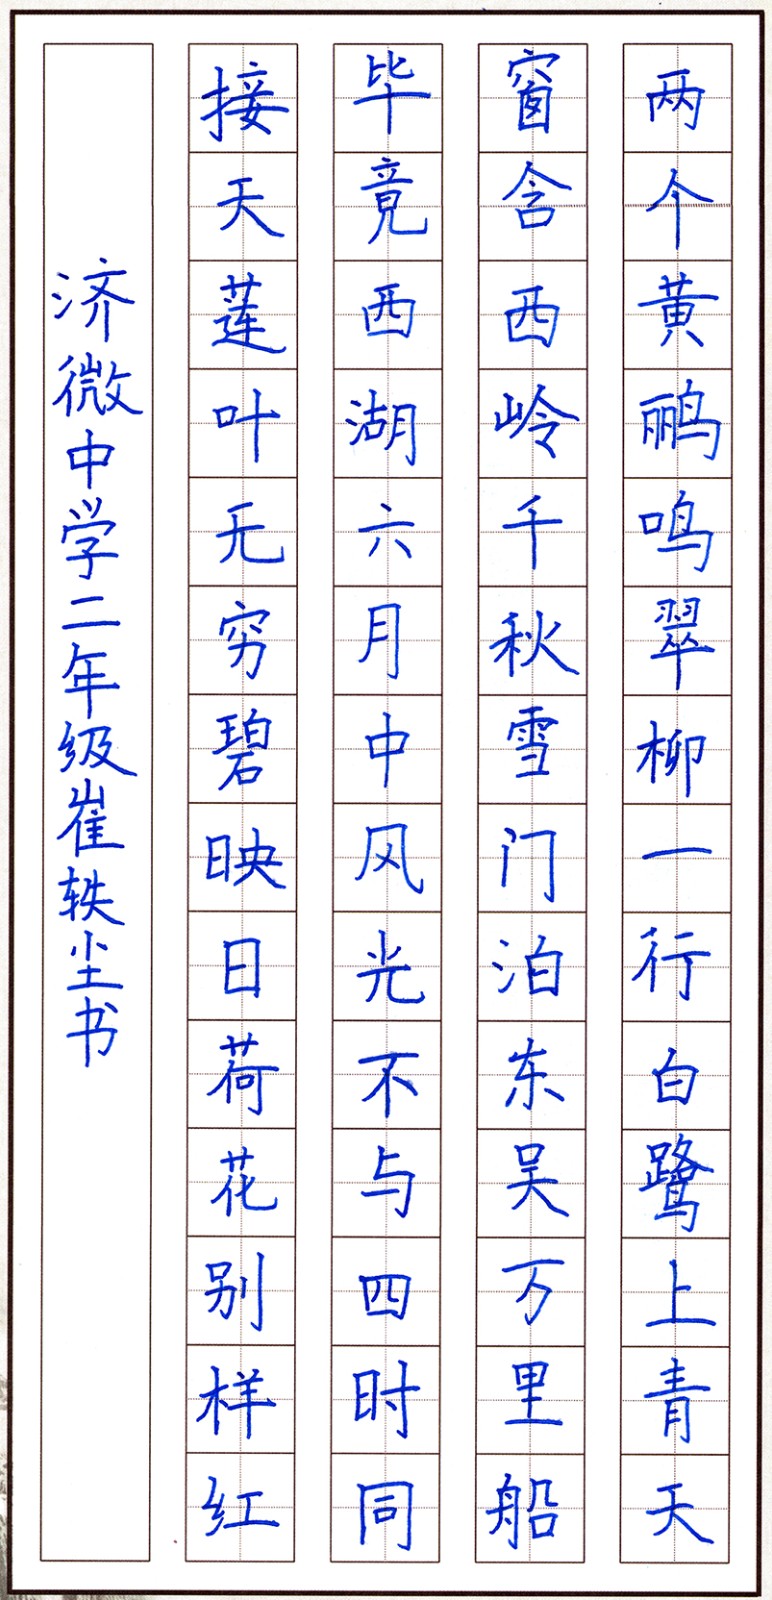 两个黄鹂鸣翠柳一行白鹭上青天
窗含西岭千秋雪门泊东吴万里船
毕竟西湖六月中风光不与四时同
接天莲叶无穷碧映日荷花别样红
济微中学二年级崔轶尘书